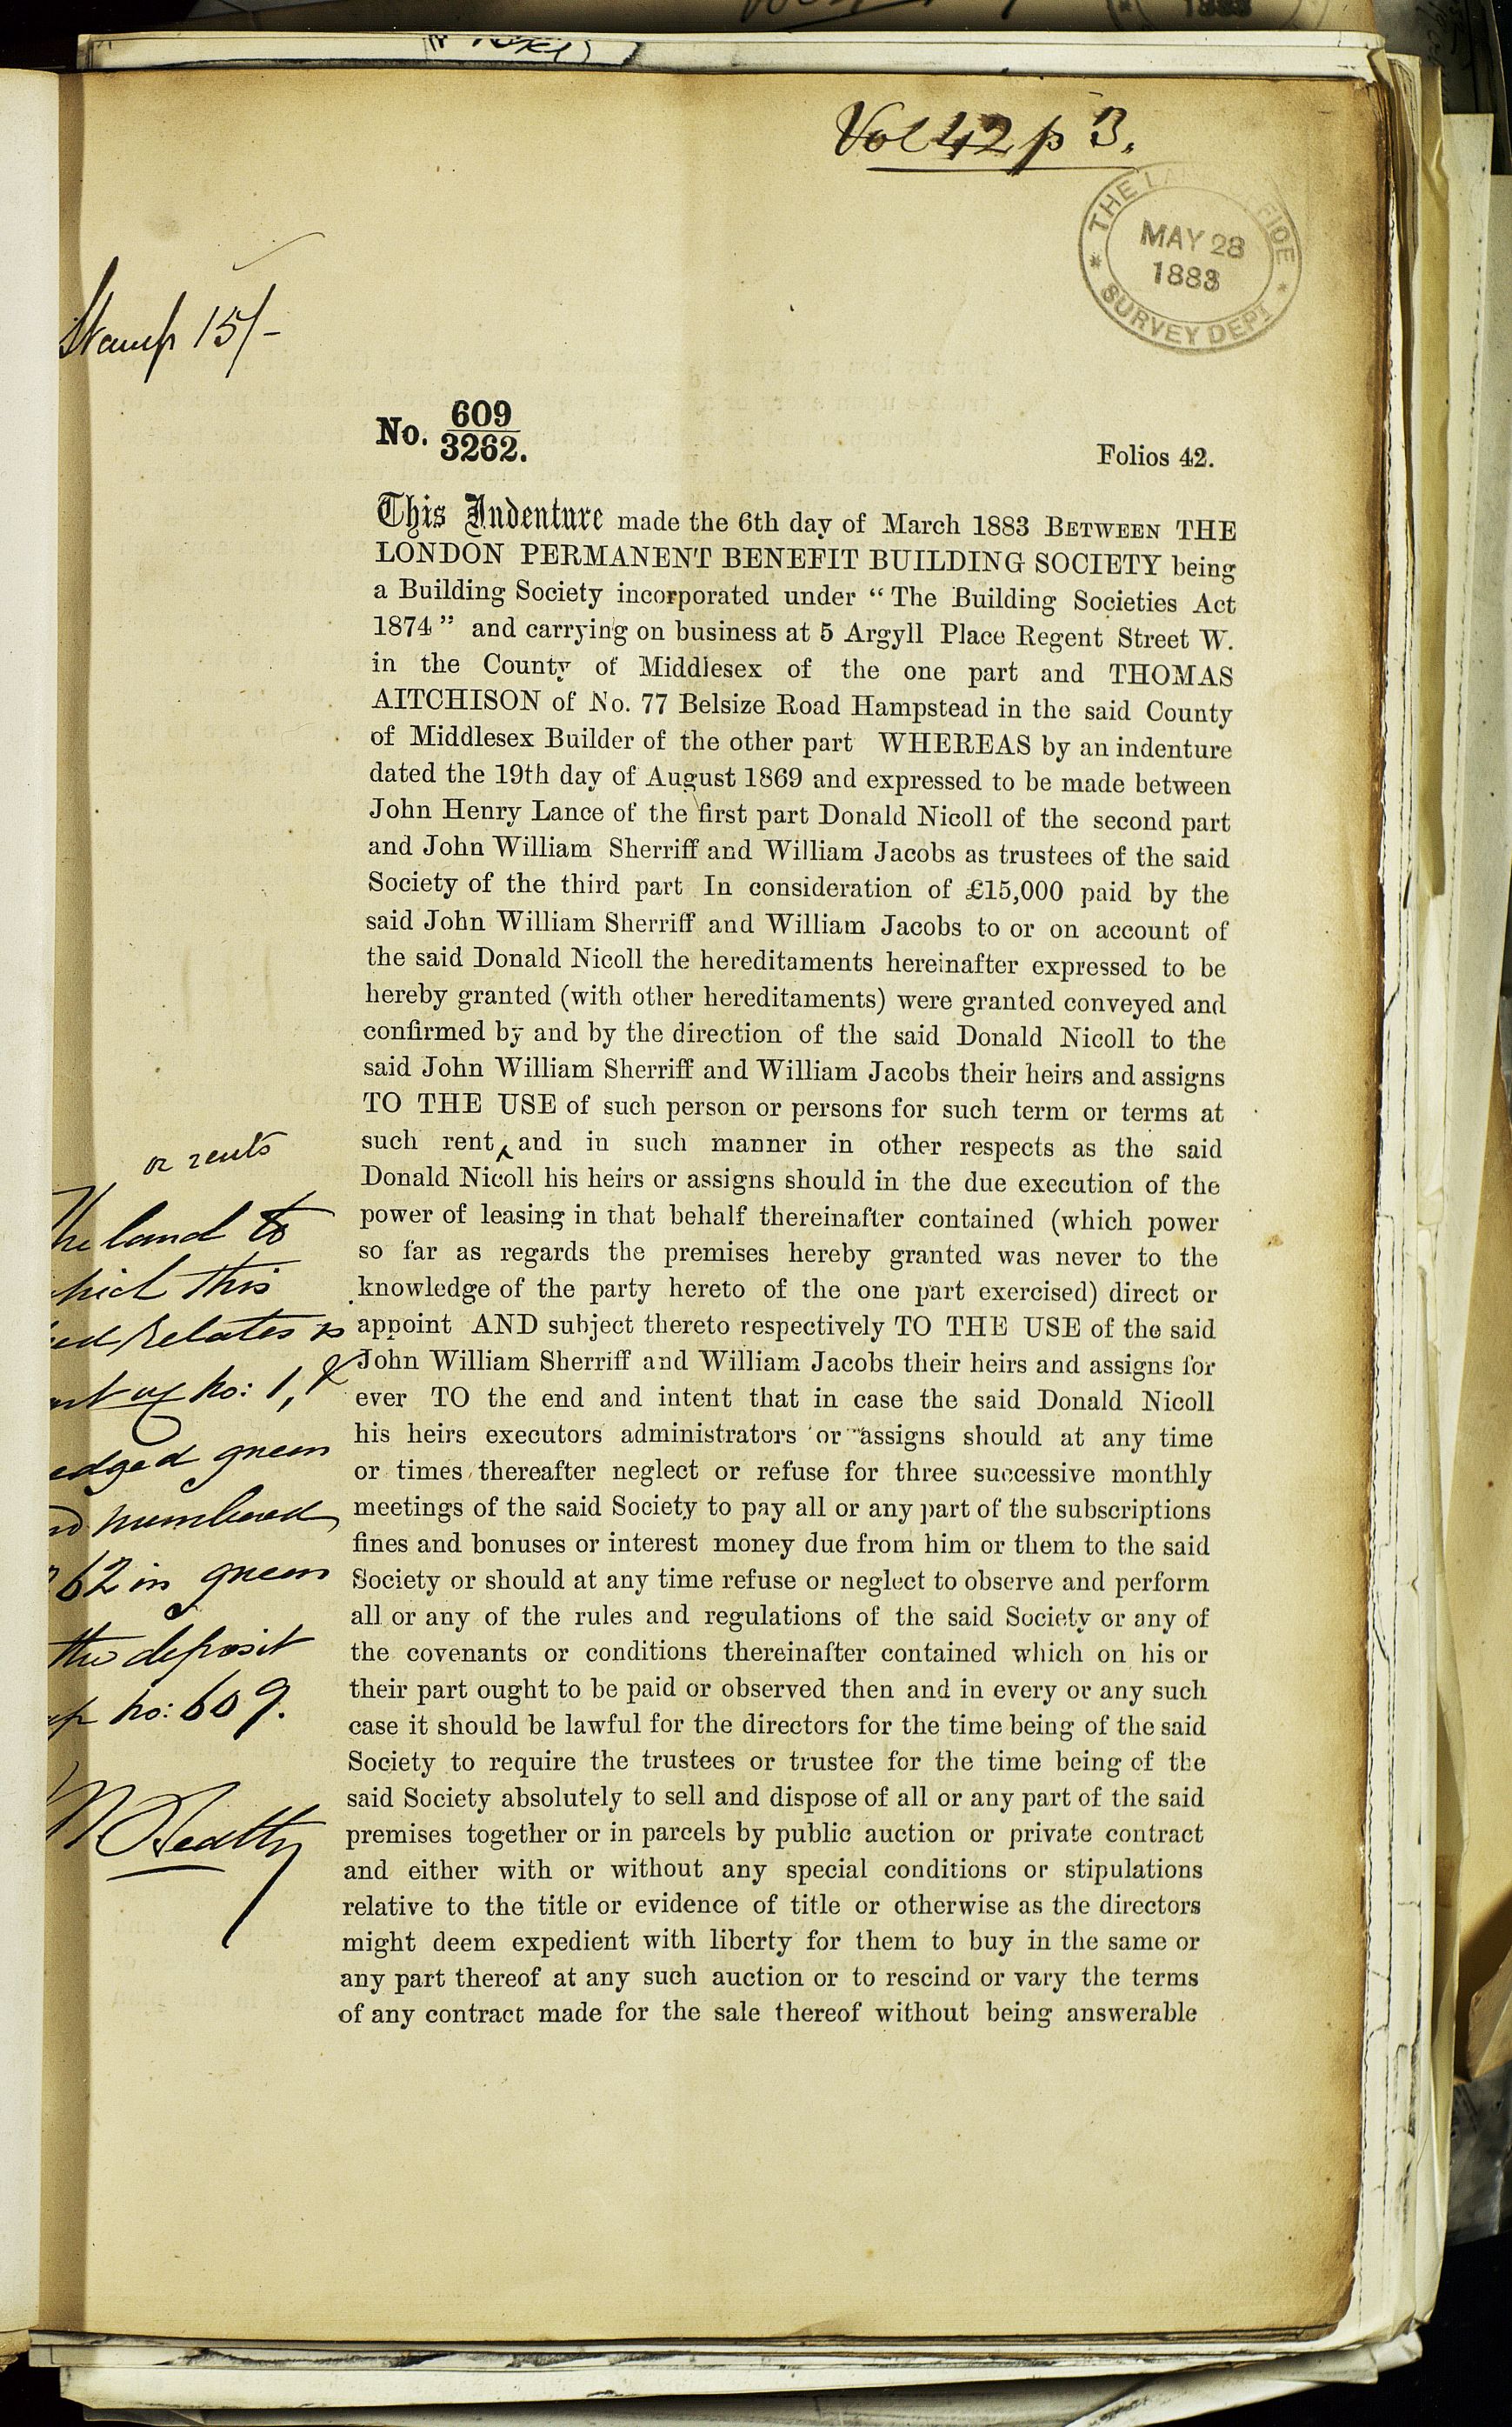 Vol 42 p 3.
THE LAND OFFICE
MAY 28
1883
SURVEY DEPT
Stamp 15/-
No. 609/3262.
Folios 42.
This Indenture made the 6th day of March 1883 BETWEEN THE
LONDON PERMANENT BENEFIT BUILDING SOCIETY being
a Building Society incorporated under “The Building Societies Act
1874” and carrying on business at 5 Argyll Place Regent Street W.
in the County of Middlesex of the one part and THOMAS
AITCHISON of No. 77 Belsize Road Hampstead in the said County
of Middlesex Builder of the other part WHEREAS by an indenture
dated the 19th day of August 1869 and expressed to be made between
John Henry Lance of the first part Donald Nicoll of the second part
and John William Sherriff and William Jacobs as trustees of the said
Society of the third part In consideration of £15,000 paid by the
said John William Sherriff and William Jacobs to or on account of
the said Donald Nicoll the hereditaments hereinafter expressed to be
hereby granted (with other hereditaments) were granted conveyed and
confirmed by and by the direction of the said Donald Nicoll to the
said John William Sherriff and William Jacobs their heirs and assigns
TO THE USE of such person or persons for such term or terms at
such rent ‸ and in such manner in other respects as the said
Donald Nicoll his heirs or assigns should in the due execution of the
power of leasing in that behalf thereinafter contained (which power
so far as regards the premises hereby granted was never to the
knowledge of the party hereto of the one part exercised) direct or
appoint AND subject thereto respectively TO THE USE of the said
John William Sherriff and William Jacobs their heirs and assigns for
ever TO the end and intent that in case the said Donald Nicoll
his heirs executors administrators or assigns should at any time
or times thereafter neglect or refuse for three successive monthly
meetings of the said Society to pay all or any part of the subscriptions
fines and bonuses or interest money due from him or them to the said
Society or should at any time refuse or neglect to observe and perform
all or any of the rules and regulations of the said Society or any of
the covenants or conditions thereinafter contained which on his or
their part ought to be paid or observed then and in every or any such
case it should be lawful for the directors for the time being of the said
Society to require the trustees or trustee for the time being of the
said Society absolutely to sell and dispose of all or any part of the said
premises together or in parcels by public auction or private contract
and either with or without any special conditions or stipulations
relative to the title or evidence of title or otherwise as the directors
might deem expedient with liberty for them to buy in the same or
any part thereof at any such auction or to rescind or vary the terms
of any contract made for the sale thereof without being answerable
or rents
The land to
which this
relates is
of no: 1, &
edged green
numbered
62 in green
the deposit
no: 609.